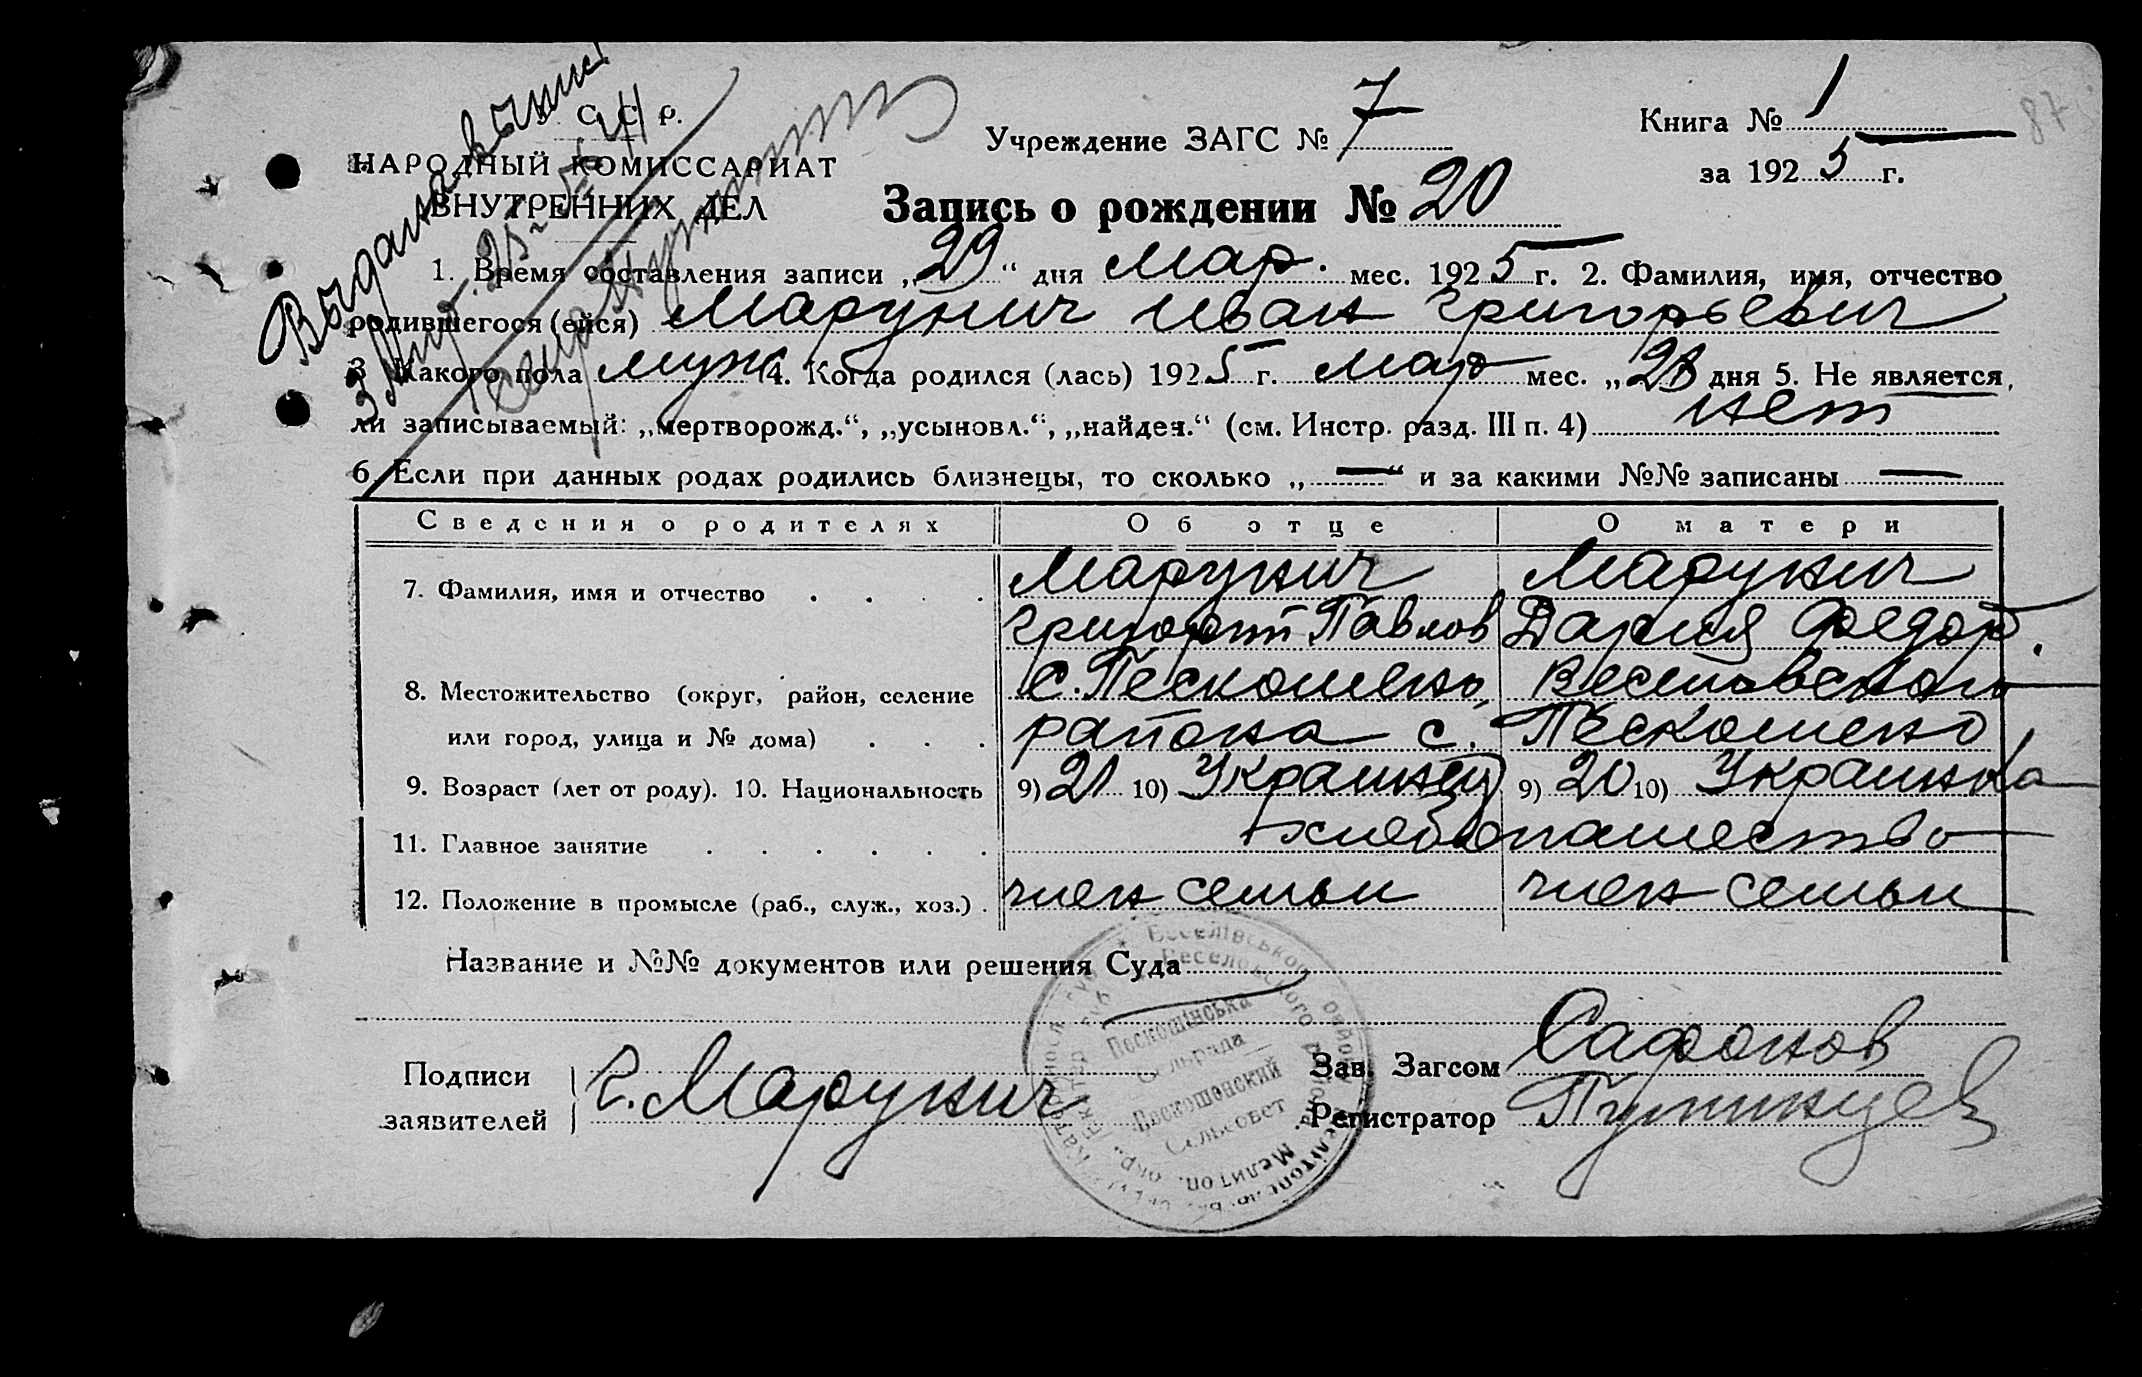 С. С. Р.
НАРОДНЫЙ КОМИССАРИАТ
ВНУТРЕННИХ ДЕЛ
Выдана выпись
Учреждение ЗАГС № 7
Книга № 1
за 1925 г.
87
Запись о рождении № 20
1. Время составления записи „29“ дня Мар. мес. 1925 г. 2. Фамилия, имя, отчество
родившегося (ейся) Марунич Иван Григорьевич
3. Какого пола муж 4. Когда родился (лась) 1925 г. Мар мес. „ дня 5. Не является,
ли записываемый: „мертворожд.“, „усыновл.“, „найден.“ (см. Инстр. разд. III п. 4) нет
6. Если при данных родах родились близнецы, то сколько „—“ и за какими №№ записаны —
Сведения о родителях Об отце О матери
7. Фамилия, имя и отчество . . . . Марунич Марунич
Григорий Павлов Дария Федор.
8. Местожительство (округ, район, селение с. Пескошено Веселовского
или город, улица и № дома) . . . района с. Пескошено
9. Возраст (лет от роду). 10. Национальность 9) 21 10) Украинец 9) 20 10) Украинка
11. Главное занятие . . . . . . хлебопашество
12. Положение в промысле (раб., служ., хоз.) . член семьи член семьи
Название и №№ документов или решения Суда
Песношінська
Сельрада
Песношонский
Сельсовет
Мелитоп. окр.
Подписи
заявителей
Г. Марунич
Зав. Загсом Сафонов
Регистратор